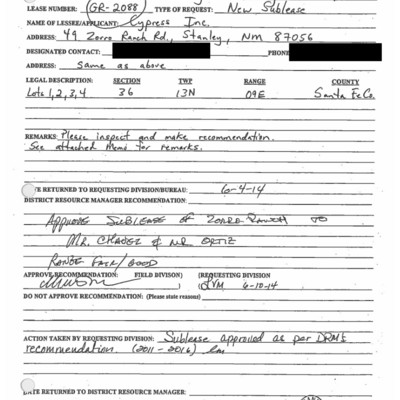 LEASE NUMBER: (GR-2088) TYPE OF REQUEST: New Sublease
NAME OF LESSEE/APPLICANT: Cypress Inc.
ADDRESS: 49 Zorro Ranch Rd., Stanley, NM 87056
DESIGNATED CONTACT: PHONE
ADDRESS: Same as above
LEGAL DESCRIPTION: SECTION TWP RANGE COUNTY
Lots 1,2,3,4 36 13N 09E Santa Fe Co.
REMARKS: Please inspect and make recommendation.
See attached memo for remarks.
TE RETURNED TO REQUESTING DIVISION/BUREAU: 6-4-14
DISTRICT RESOURCE MANAGER RECOMMENDATION:
APPROVE SUBLEASE OF ZORRO RANCH TO
MR. CHAVEZ & MR ORTIZ
RANGE FAIR/GOOD
APPROVE RECOMMENDATION: FIELD DIVISION) (REQUESTING DIVISION
6-10-14
DO NOT APPROVE RECOMMENDATION: (Please state reasons)
ACTION TAKEN BY REQUESTING DIVISION: Sublease approved as per DRM's
recommendation. (2011-2016)
DATE RETURNED TO DISTRICT RESOURCE MANAGER: